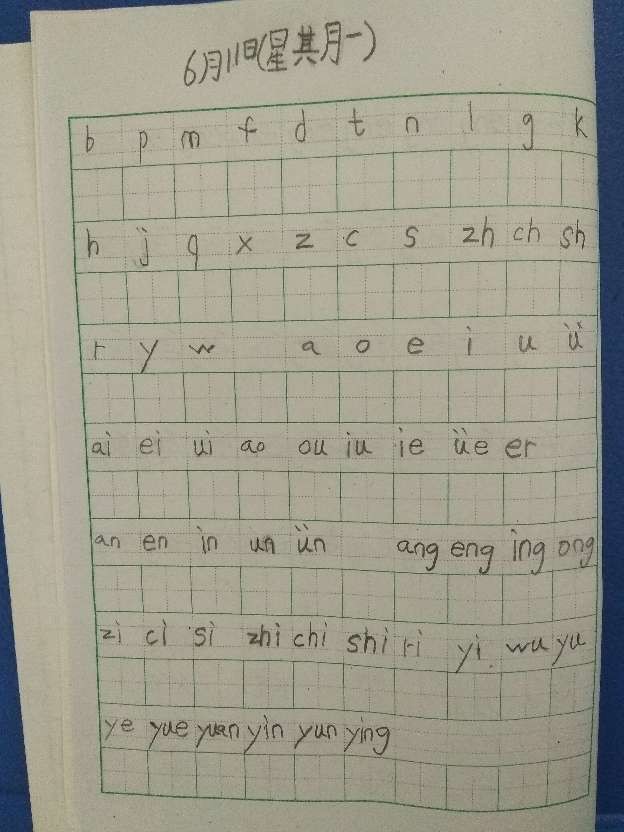 6月11日(星其月一)
b p m f d t n l g k
h j q x z c s zh ch sh
r y w a o e i u ü
ai ei ui ao ou iu ie üe er
an en in un ün ang eng ing ong
zi ci si zhi chi shi ri yi wu yu
ye yue yuan yin yun ying